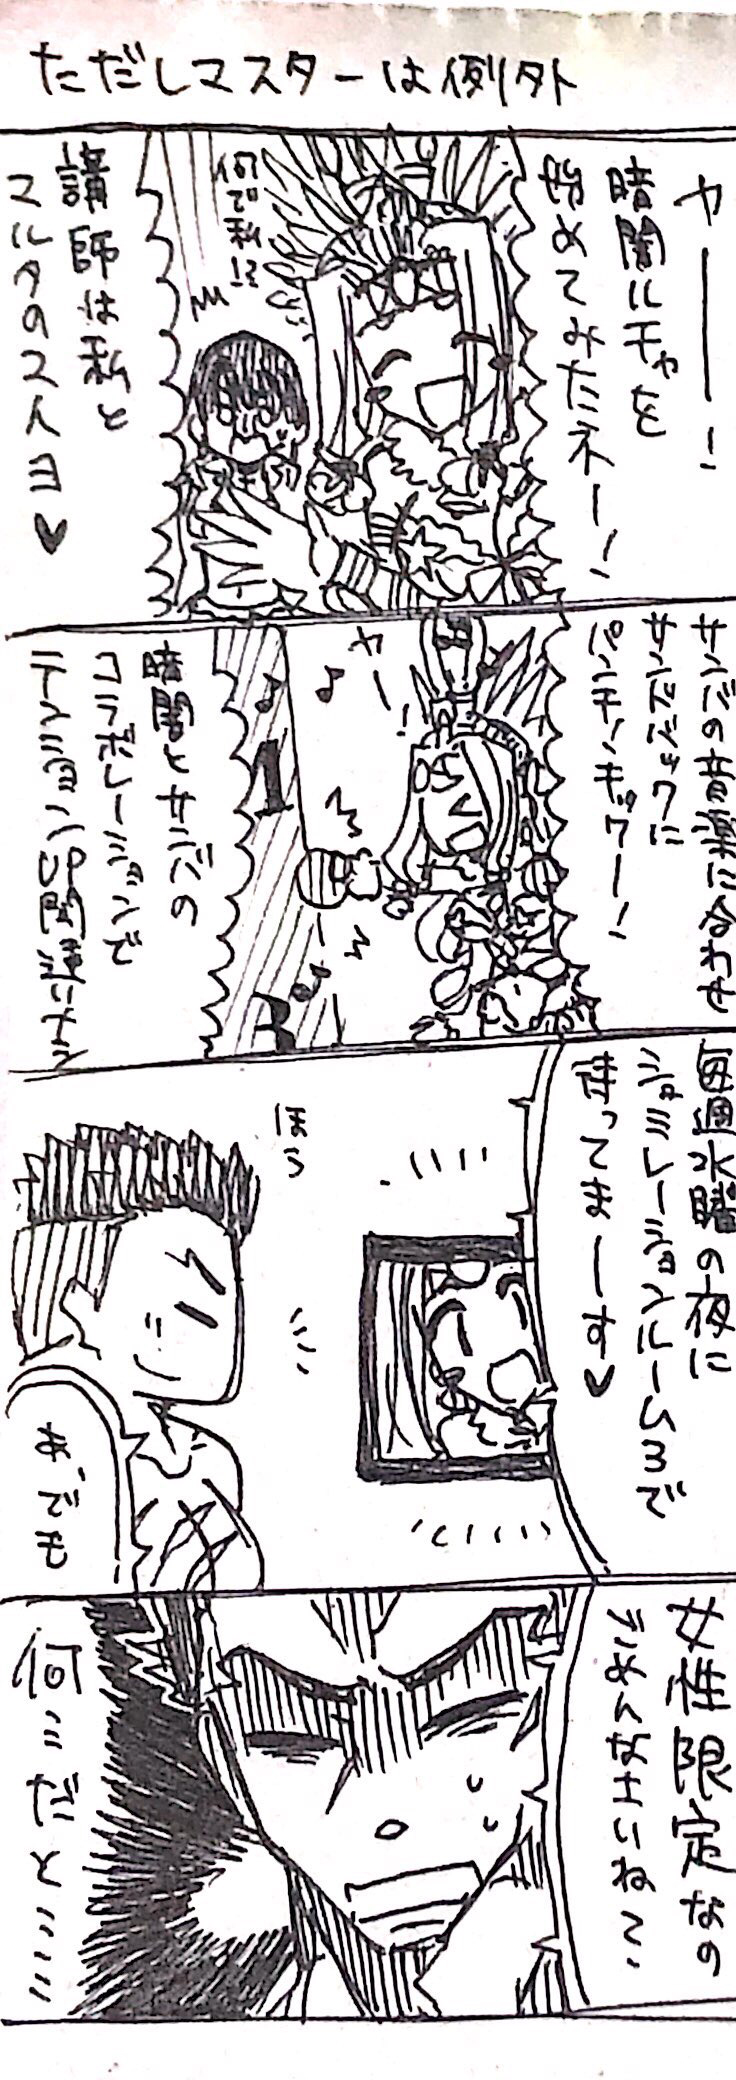 ただしマスターは例外
ヤーーー!
暗闇ルチャを
始めてみたネー!
何で私!?
講師は私と
マルタの2人ヨ♥
サンバの音楽に合わせ
サンドバックに
パンチ!キック!
ヤー!
♪
♪
1
2
暗闇とサンバの
コラボレーションで
テンションUP間違いナシ
毎週水曜の夜に
シミュレーションルーム3で
待ってまーす♥
ほう
あ、でも
女性限定なの
ごめんなさいね〜
何…だと……